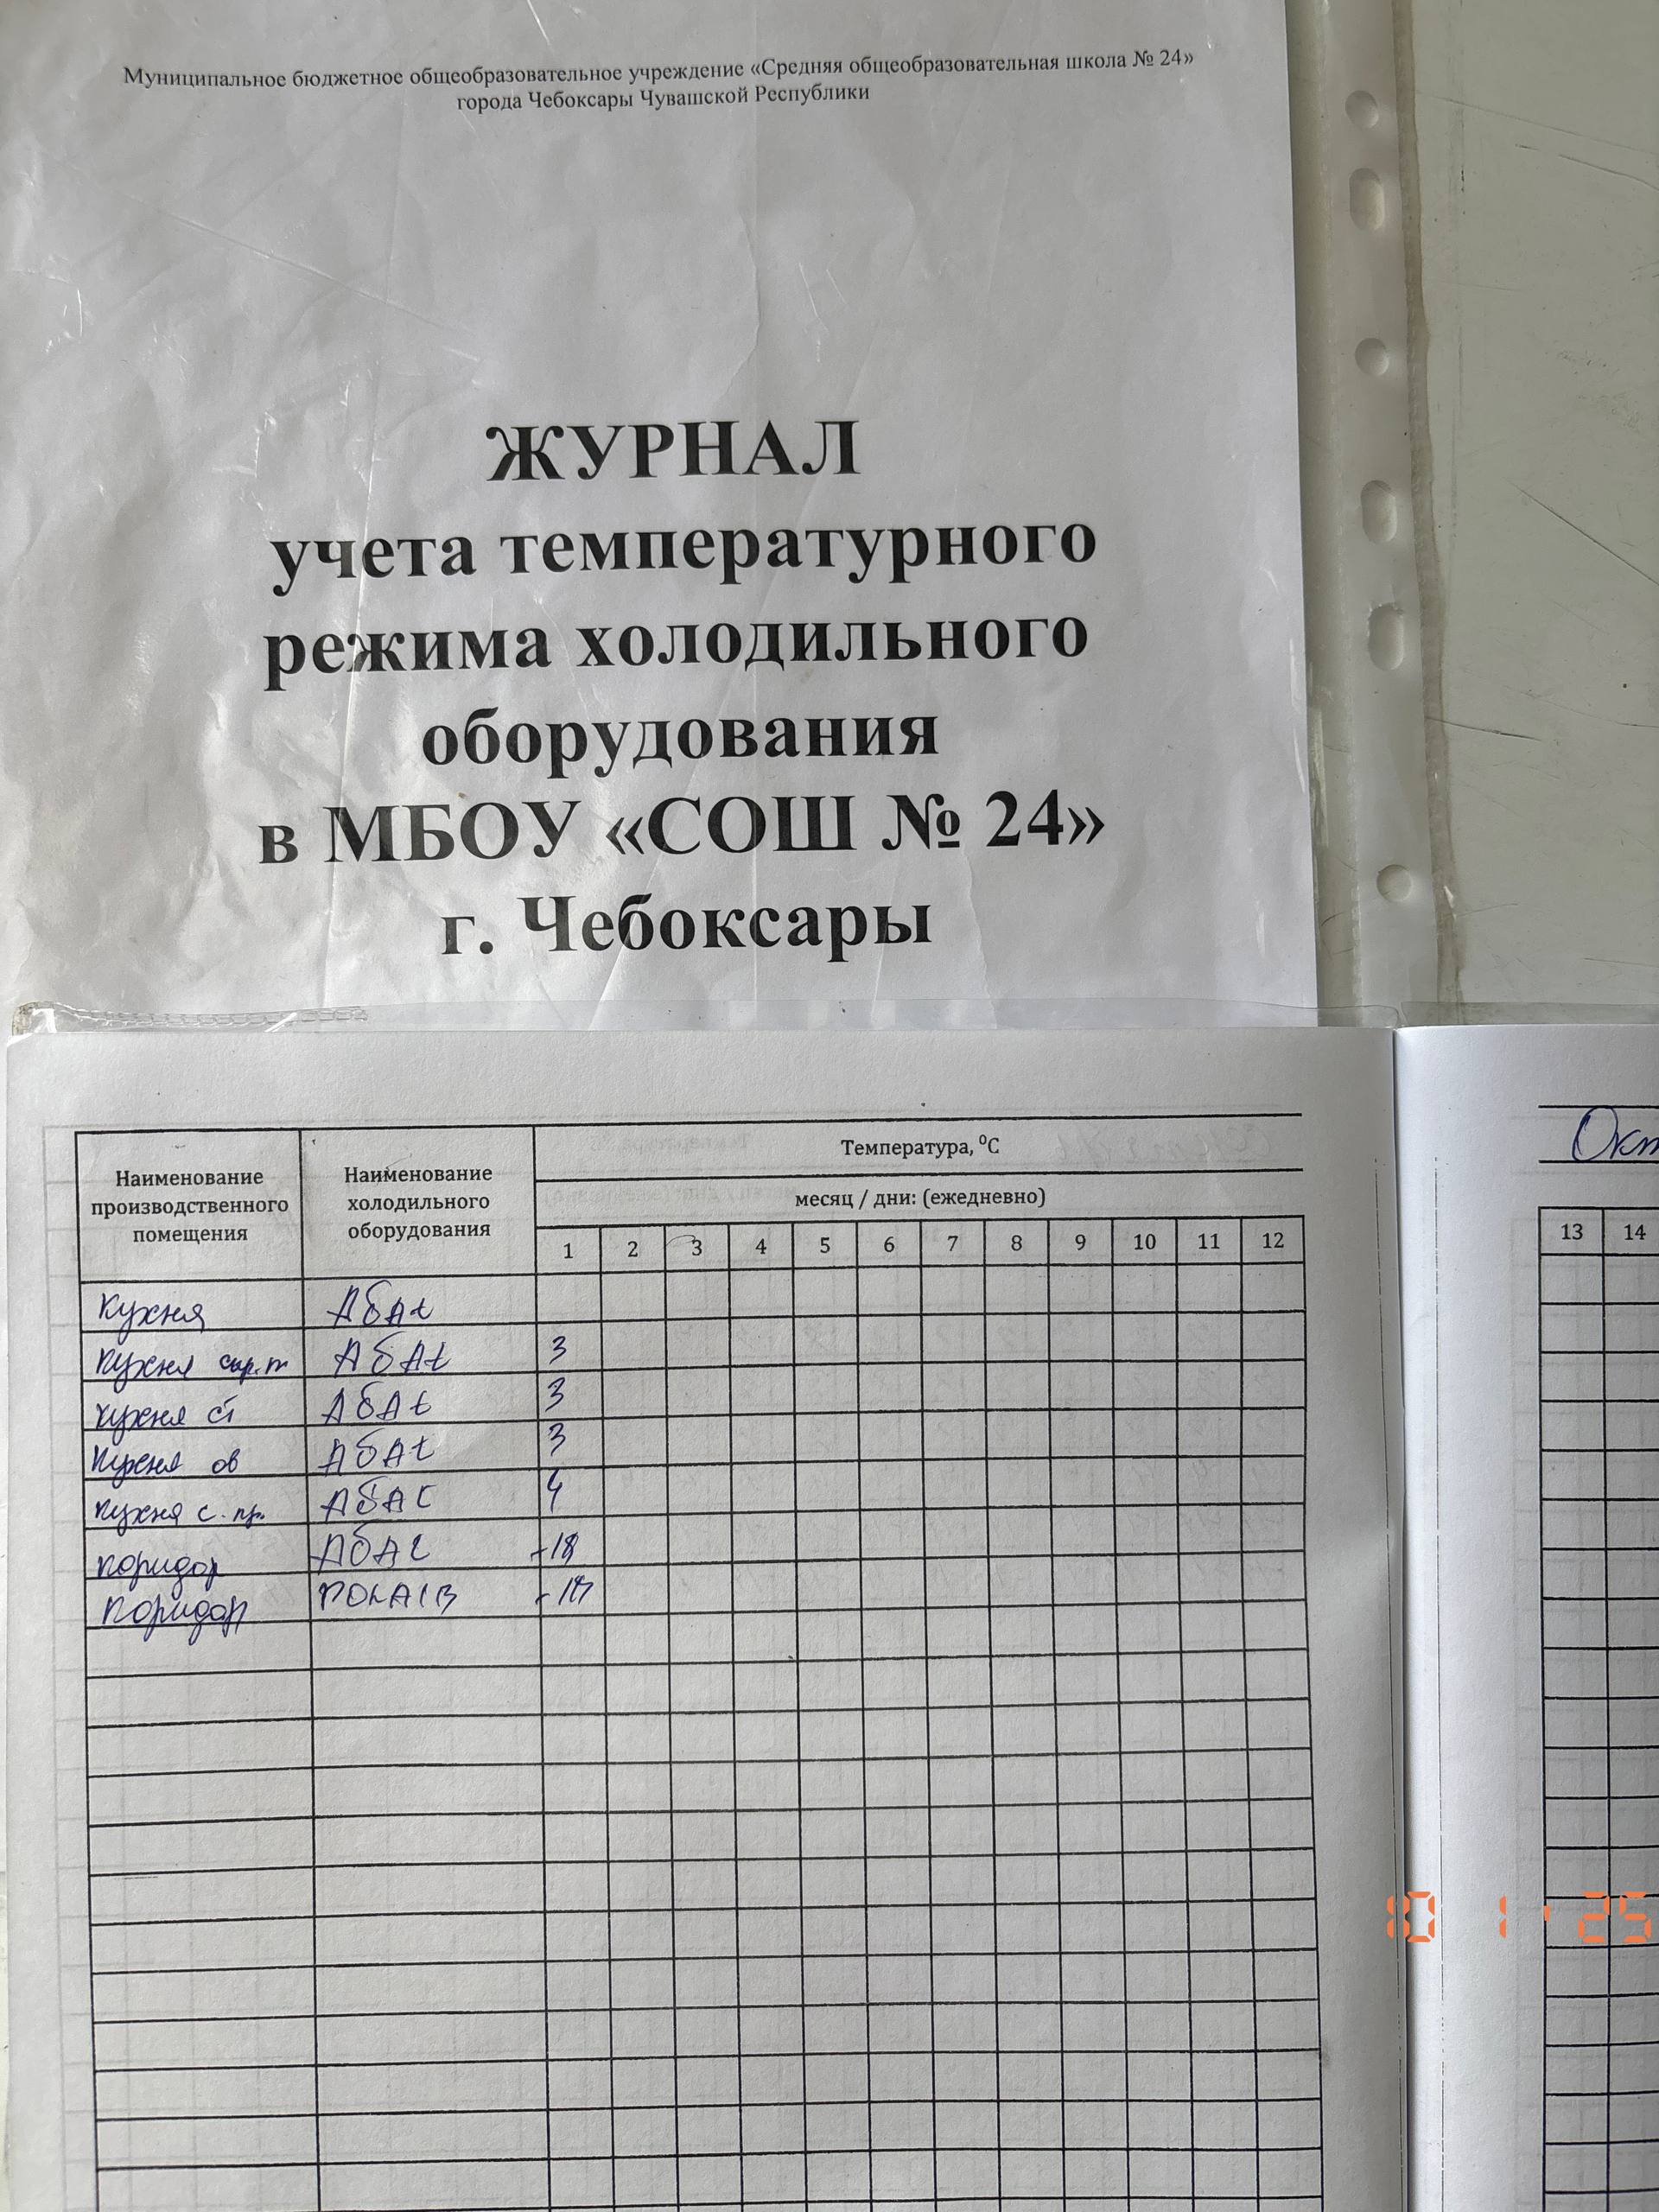 Муниципальное бюджетное общеобразовательное учреждение «Средняя общеобразовательная школа № 24»
города Чебоксары Чувашской Республики
ЖУРНАЛ
учета температурного
режима холодильного
оборудования
в МБОУ «СОШ № 24»
г. Чебоксары
Наименование производственного помещения
Наименование холодильного оборудования
Температура, ⁰С
месяц / дни: (ежедневно)
1 2 3 4 5 6 7 8 9 10 11 12
Окт
13 14
Кухня Абат
Кухня сыр.т Абат 3
Кухня ст Абат 3
Кухня ов Абат 3
Кухня с. пр. Абат 4
Коридор Абат -18
Коридор POLAIR
10 1 '25